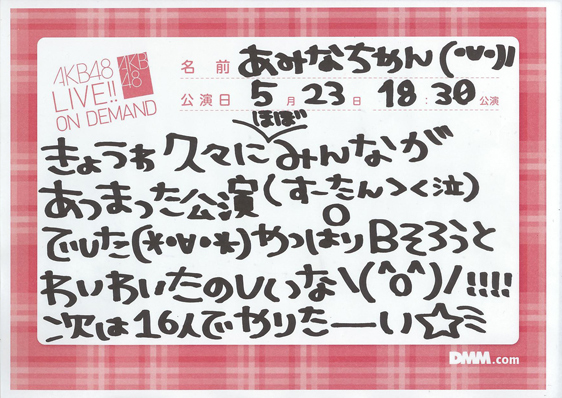 AKB48
LIVE!!
ON DEMAND
AKB
48
名前 あみなちゃん(･∀･)))
公演日 5月23日 18:30公演
ほぼ
きょうわ久々にみんなが
あつまった公演(すーたん><泣)
でした(*･∀･*)やっぱりBそろうと
わいわいたのしいな\(^o^)/!!!!
次は16人でやりたーーい☆ミ
DMM.com